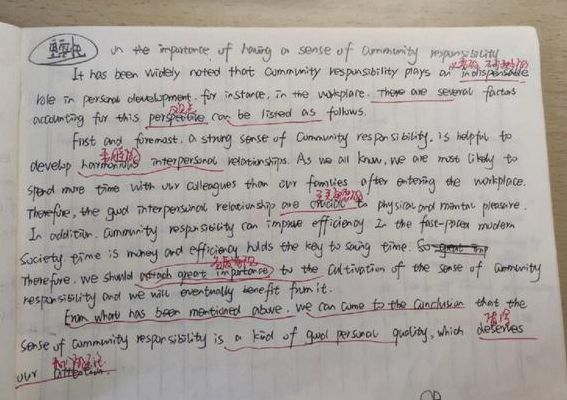 on the importance of having a sense of community responsibility
It has been widely noted that community responsibility plays an indispensable
role in personal development. for instance, in the workplace. There are several factors
accounting for this perspective can be listed as follows.
First and foremost, a strong sense of community responsibility, is helpful to
和谐的
develop harmonious interpersonal relationships. As we all know, we are most likely to
spend more time with our colleagues than our families after entering the workplace.
Therefore, the good interpersonal relationship are crucial to physical and mental pleasure.
In addition, community responsibility can improve efficiency In the fast-paced modern
society time is money and efficiency holds the key to saving time. So great imp
Therefore, we should attach great importance to the cultivation of the sense of community
responsibility and we will eventually benefit from it.
From what has been mentioned above, we can come to the conclusion that the
值得
sense of community responsibility is a kind of good personal quality, which deserves
our attention.